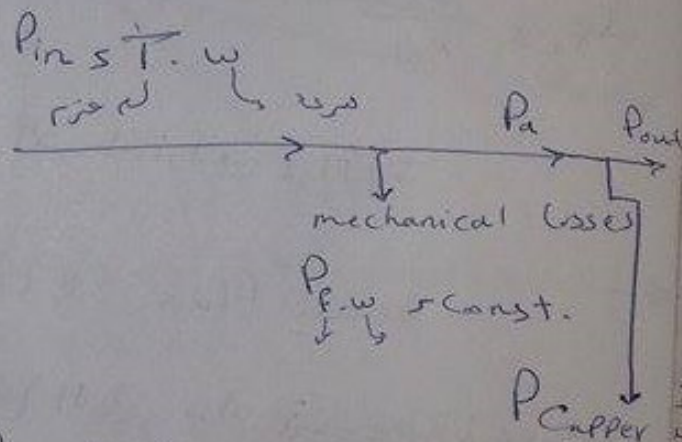 Pin = T . ω
عزم سرعة
Pa Pout
mechanical losses
Pf.ω = Const.
PCupper